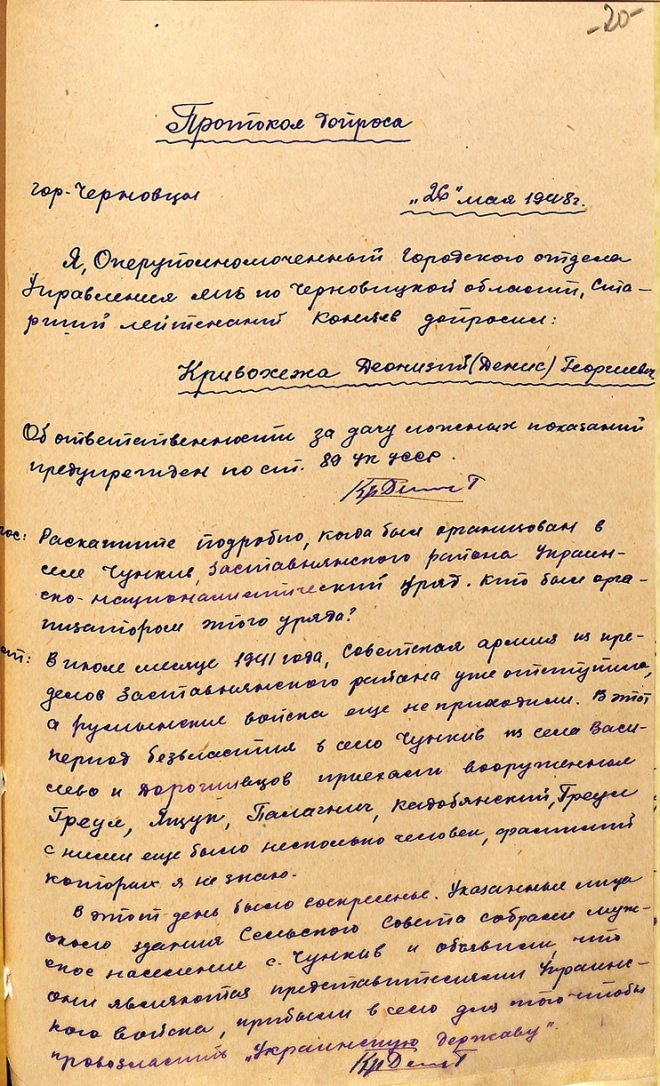 -20-
Протокол допроса
гор. Черновцы
"26" мая 1948 г.
Я, Оперуполномоченный Городского отдела
Управления МГБ по Черновицкой области, Стар-
ший лейтенант допросил:
Кривохежа Деонизий (Денис) Георгиевич
Об ответственности за дачу ложных показаний
предупрежден по ст. 89 УК УССР.
рос: Расскажите подробно, когда был организован в
селе Чункив, Заставнянского района Украин-
ско-националистический уряд. Кто был орга-
низатором этого уряда?
ет: В июле месяце 1941 года, Советская армия из пре-
делов Заставнянского района уже отступила,
а румынские войска еще не приходили. В этот
период безвластия в село Чункив из села Васи-
лево и приехали вооруженные
Греул, Ящук, Палагнюк, Кадобянский, Греул
с ними еще было несколько человек, фамилий
которых я не знаю.
В этот день было воскресенье. Указанные лица
около здания Сельского Совета собрали муж-
ское население с. Чункив и объявили, что
они являются представителями Украинс-
кого войска, прибыли в село для того чтобы
провозгласить "Украинскую державу".